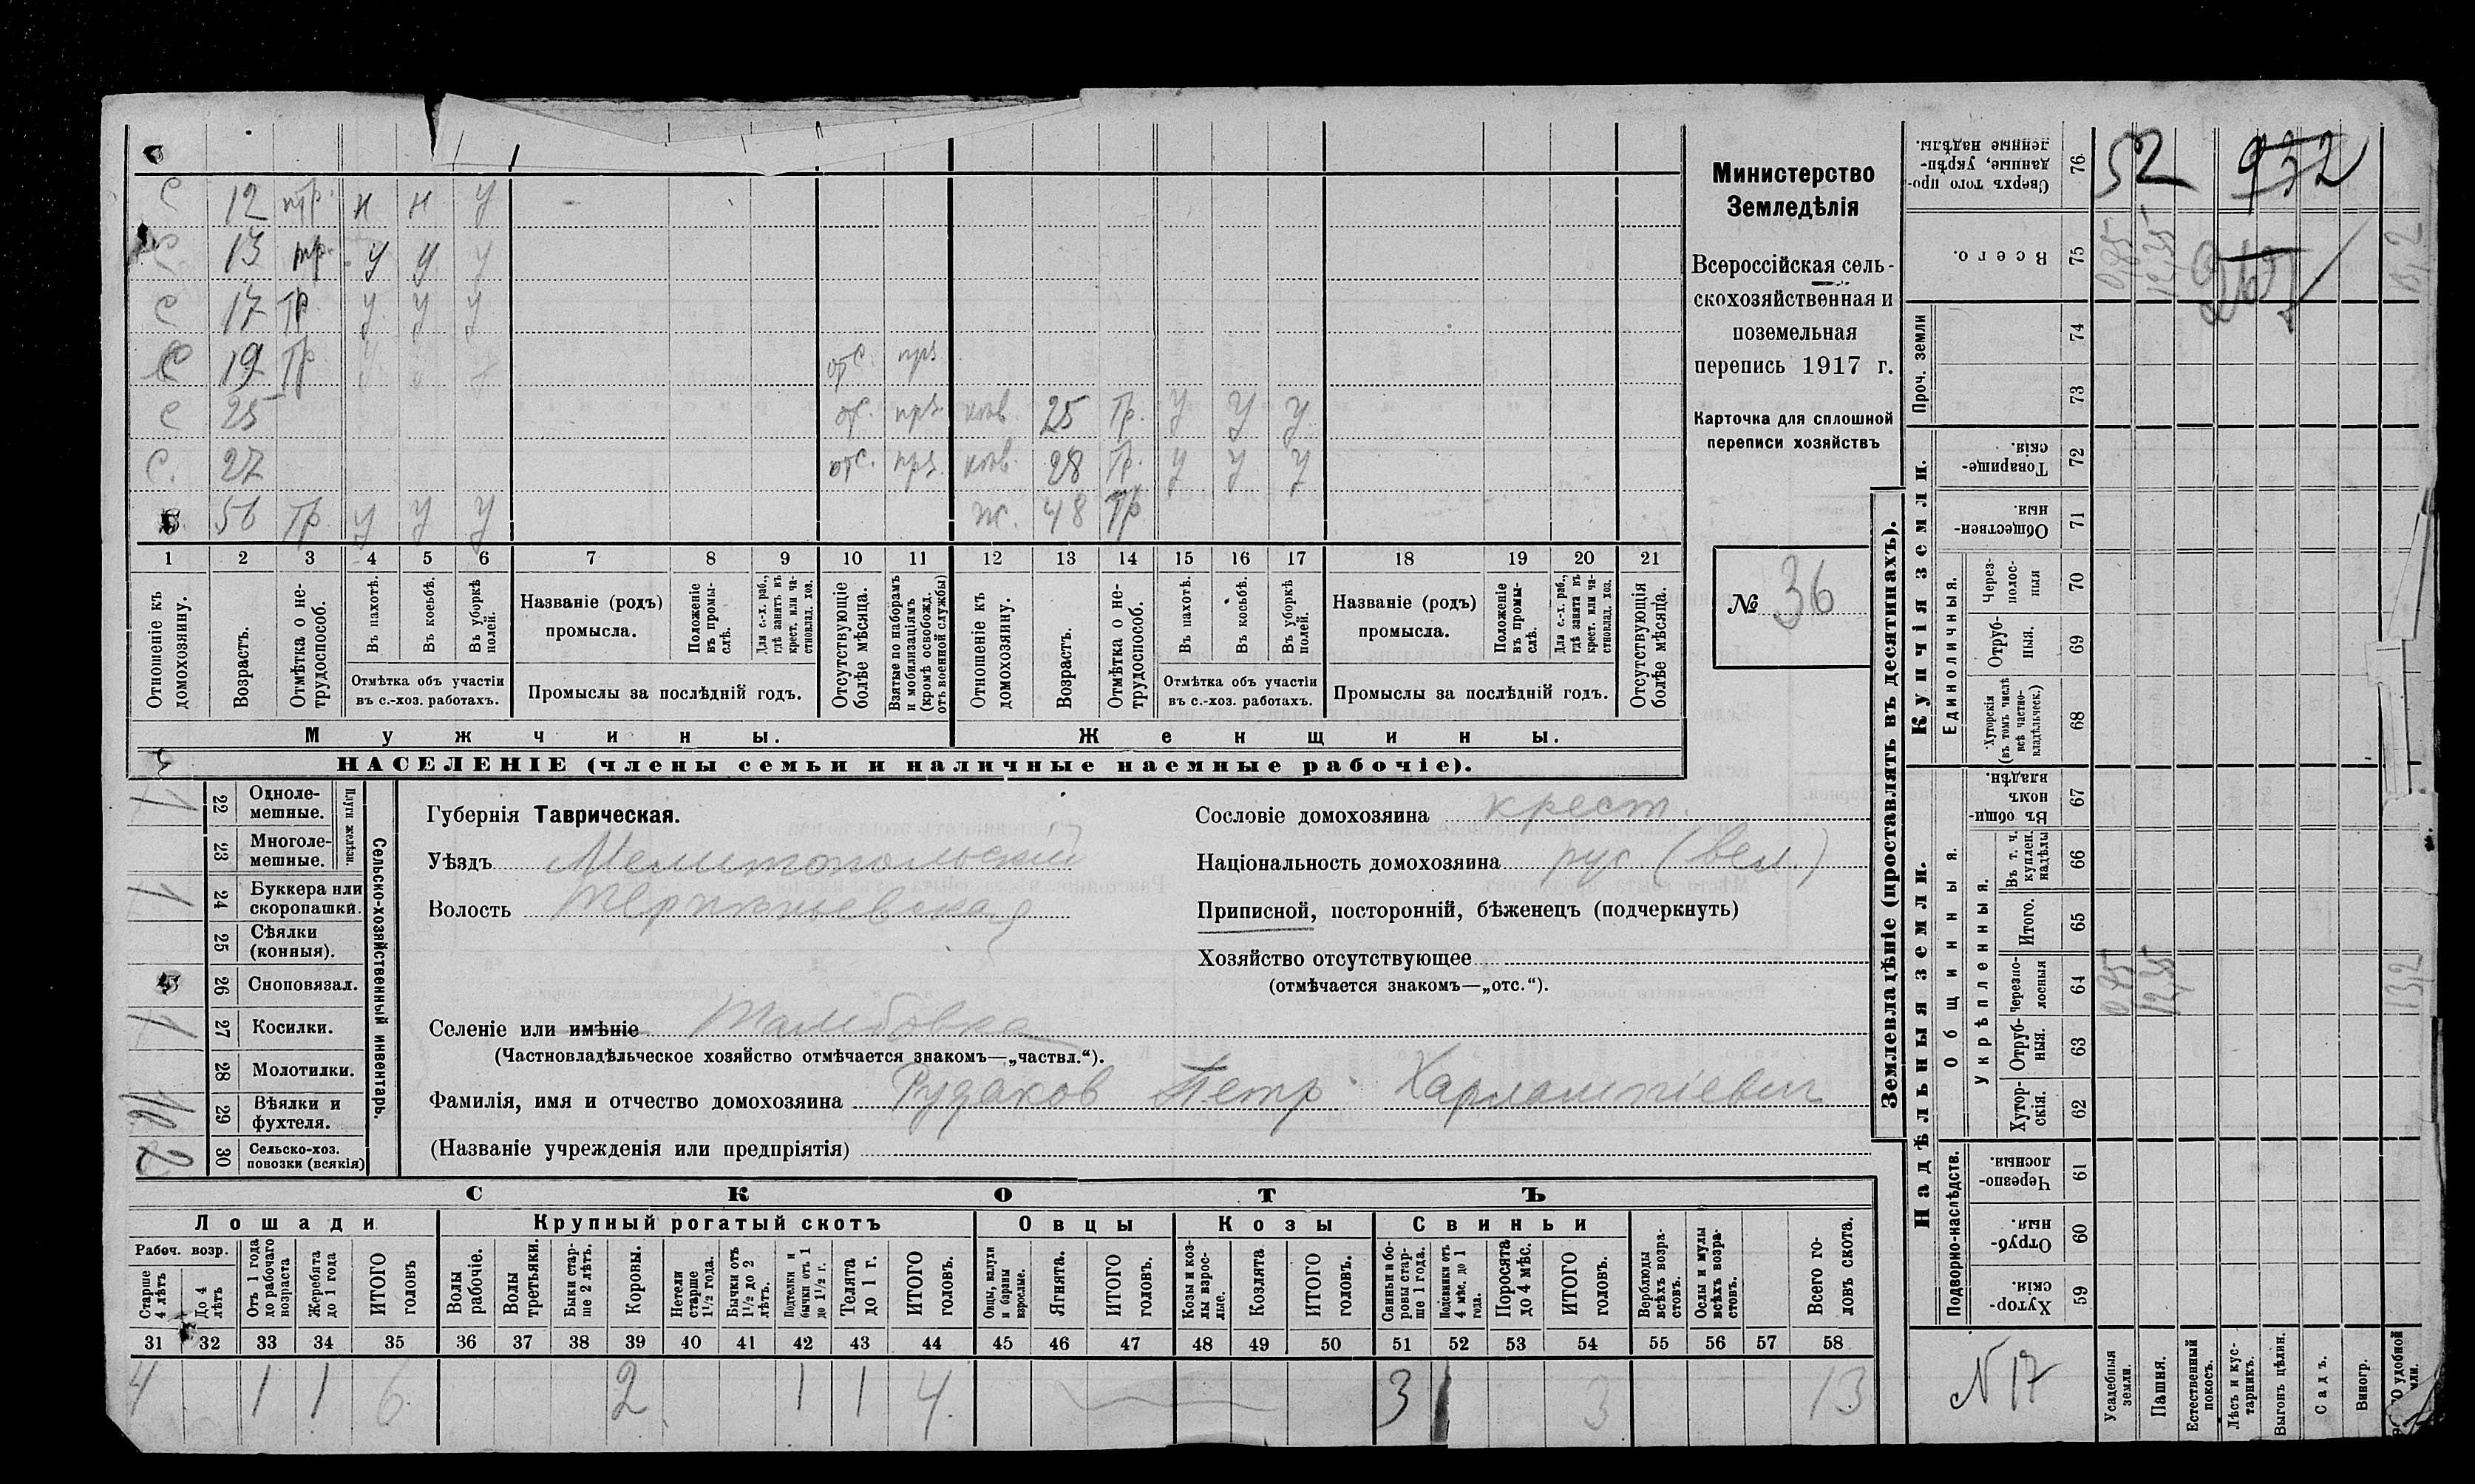 С 12 нтр. н н у
С 13 нтр. у у у
С 17 Тр. у у у
С 19 Тр. отс. прз
С 25 отс. прз. нев. 25 Тр. у у у
С. 27 отс. прз. нев. 28 Тр. у у у
56 Тр. у у у ж. 48 Тр
1 2 3 4 5 6 7 8 9 10 11 12 13 14 15 16 17 18 19 20 21
Отношеніе къ домохозяину.
Возрастъ.
Отмѣтка о не-
трудоспособ.
Въ пахотѣ.
Въ косьбѣ.
Въ уборкѣ полей.
Отмѣтка объ участіи
въ с.-хоз. работахъ.
Названіе (родъ)
промысла.
Положеніе
въ промы-
слѣ.
Для с.-х. раб.,
гдѣ занятъ въ
крест. или ча-
стновлад. хоз.
Промыслы за послѣдній годъ.
Отсутствующіе
болѣе мѣсяца.
Взятые по наборамъ
и мобилизаціямъ
(кромѣ освобожд.
отъ военной службы)
Отношеніе къ
домохозяину.
Возрастъ.
Отмѣтка о не-
трудоспособ.
Въ пахотѣ.
Въ косьбѣ.
Въ уборкѣ
полей.
Отмѣтка объ участіи
въ с.-хоз. работахъ.
Названіе (родъ)
промысла.
Положеніе
въ промы-
слѣ.
Для с.-х. раб.,
гдѣ занята въ
крест. или ча-
стновлад. хоз.
Промыслы за послѣдній годъ.
Отсутствующія
болѣе мѣсяца.
Мужчины.
Женщины.
НАСЕЛЕНІЕ (члены семьи и наличные наемные рабочіе).
Министерство
Земледѣлія
Всероссійская сель-
скохозяйственная и
поземельная
перепись 1917 г.
Карточка для сплошной
переписи хозяйствъ
№ 36
Сельско-хозяйственный инвентарь.
Плуги желѣзн.
1 22 Однолe-
мешные.
23 Многоле-
мешные.
1 24 Буккера или
скоропашки.
25 Сѣялки
(конныя).
26 Сноповязал.
1 27 Косилки.
28 Молотилки.
29 Вѣялки и
фухтеля.
2 30 Сельско-хоз.
повозки (всякія)
Губернія Таврическая.
Уѣздъ Мелитопольскій
Волость Терпѣньевская
Селеніе или имѣніе Тамбовка
(Частновладѣльческое хозяйство отмѣчается знакомъ—„частвл.“).
Фамилія, имя и отчество домохозяина Рудаков Петр Харлампіевич
(Названіе учрежденія или предпріятія)
Сословіе домохозяина крест.
Національность домохозяина рус (вел.)
Приписной, посторонній, бѣженецъ (подчеркнуть)
Хозяйство отсутствующее
(отмѣчается знакомъ—„отс.“).
СКОТЪ
Лошади Крупный рогатый скотъ Овцы Козы Свиньи
Рабоч. возр.
Старше
4 лѣтъ
До 4
лѣтъ
Отъ 1 года
до рабочаго
возраста
Жеребята
до 1 года
ИТОГО
головъ
Волы
рабочіе.
Волы
третьяки.
Быки стар-
ше 2 лѣтъ.
Коровы.
Нетели
старше
1½ года.
Бычки отъ
1½ до 2
лѣтъ.
Подтелки и
бычки отъ 1
до 1½ г.
Телята
до 1 г.
ИТОГО
головъ.
Овцы, валухи
и бараны
взрослые.
Ягнята.
ИТОГО
головъ.
Козы и коз-
лы взрос-
лые.
Козлята
ИТОГО
головъ.
Свиньи и бо-
ровы стар-
ше 1 года.
Подсвинки отъ
4 мѣс. до 1
года.
Поросята
до 4 мѣс.
ИТОГО
головъ.
Верблюды
всѣхъ возра-
стовъ.
Ослы и мулы
всѣхъ возра-
стовъ.
Всего го-
ловъ скота.
31 32 33 34 35 36 37 38 39 40 41 42 43 44 45 46 47 48 49 50 51 52 53 54 55 56 57 58
4 1 1 6 2 1 1 4 3 3 13
Землевладѣніе (проставлять въ десятинахъ).
Купчія земли.
Надѣльныя земли.
Сверхъ того про-
данные, укрѣп-
ленные надѣлы.
76 52 932
Всего.
75 0,85 12,35 13,2
Проч. земли
74
73
Товарище-
скія.
72
Обществен-
ныя.
71
Единоличныя.
Через-
полос-
ныя
70
Отруб-
ныя.
69
Хуторскія
(въ томъ числѣ
всѣ частно-
владѣльческ.)
68
Общинныя.
Въ общин-
номъ
владѣн.
67
Укрѣпленныя.
Въ т. ч.
куплен.
надѣлы
66
Итого.
65
Черезпо-
лосныя
64 0,85 12,35 13,2
Отруб-
ныя.
63
Хутор-
скія.
62
Подворно-наслѣдств.
Черезпо-
лосныя.
61
Отруб-
ныя.
60
Хутор-
скія.
59
N 17
Усадебныя
земли.
Пашня.
Естественный
покосъ.
Лѣсъ и кус-
тарникъ.
Выгонъ цѣлин.
Садъ.
Виногр.
удобной